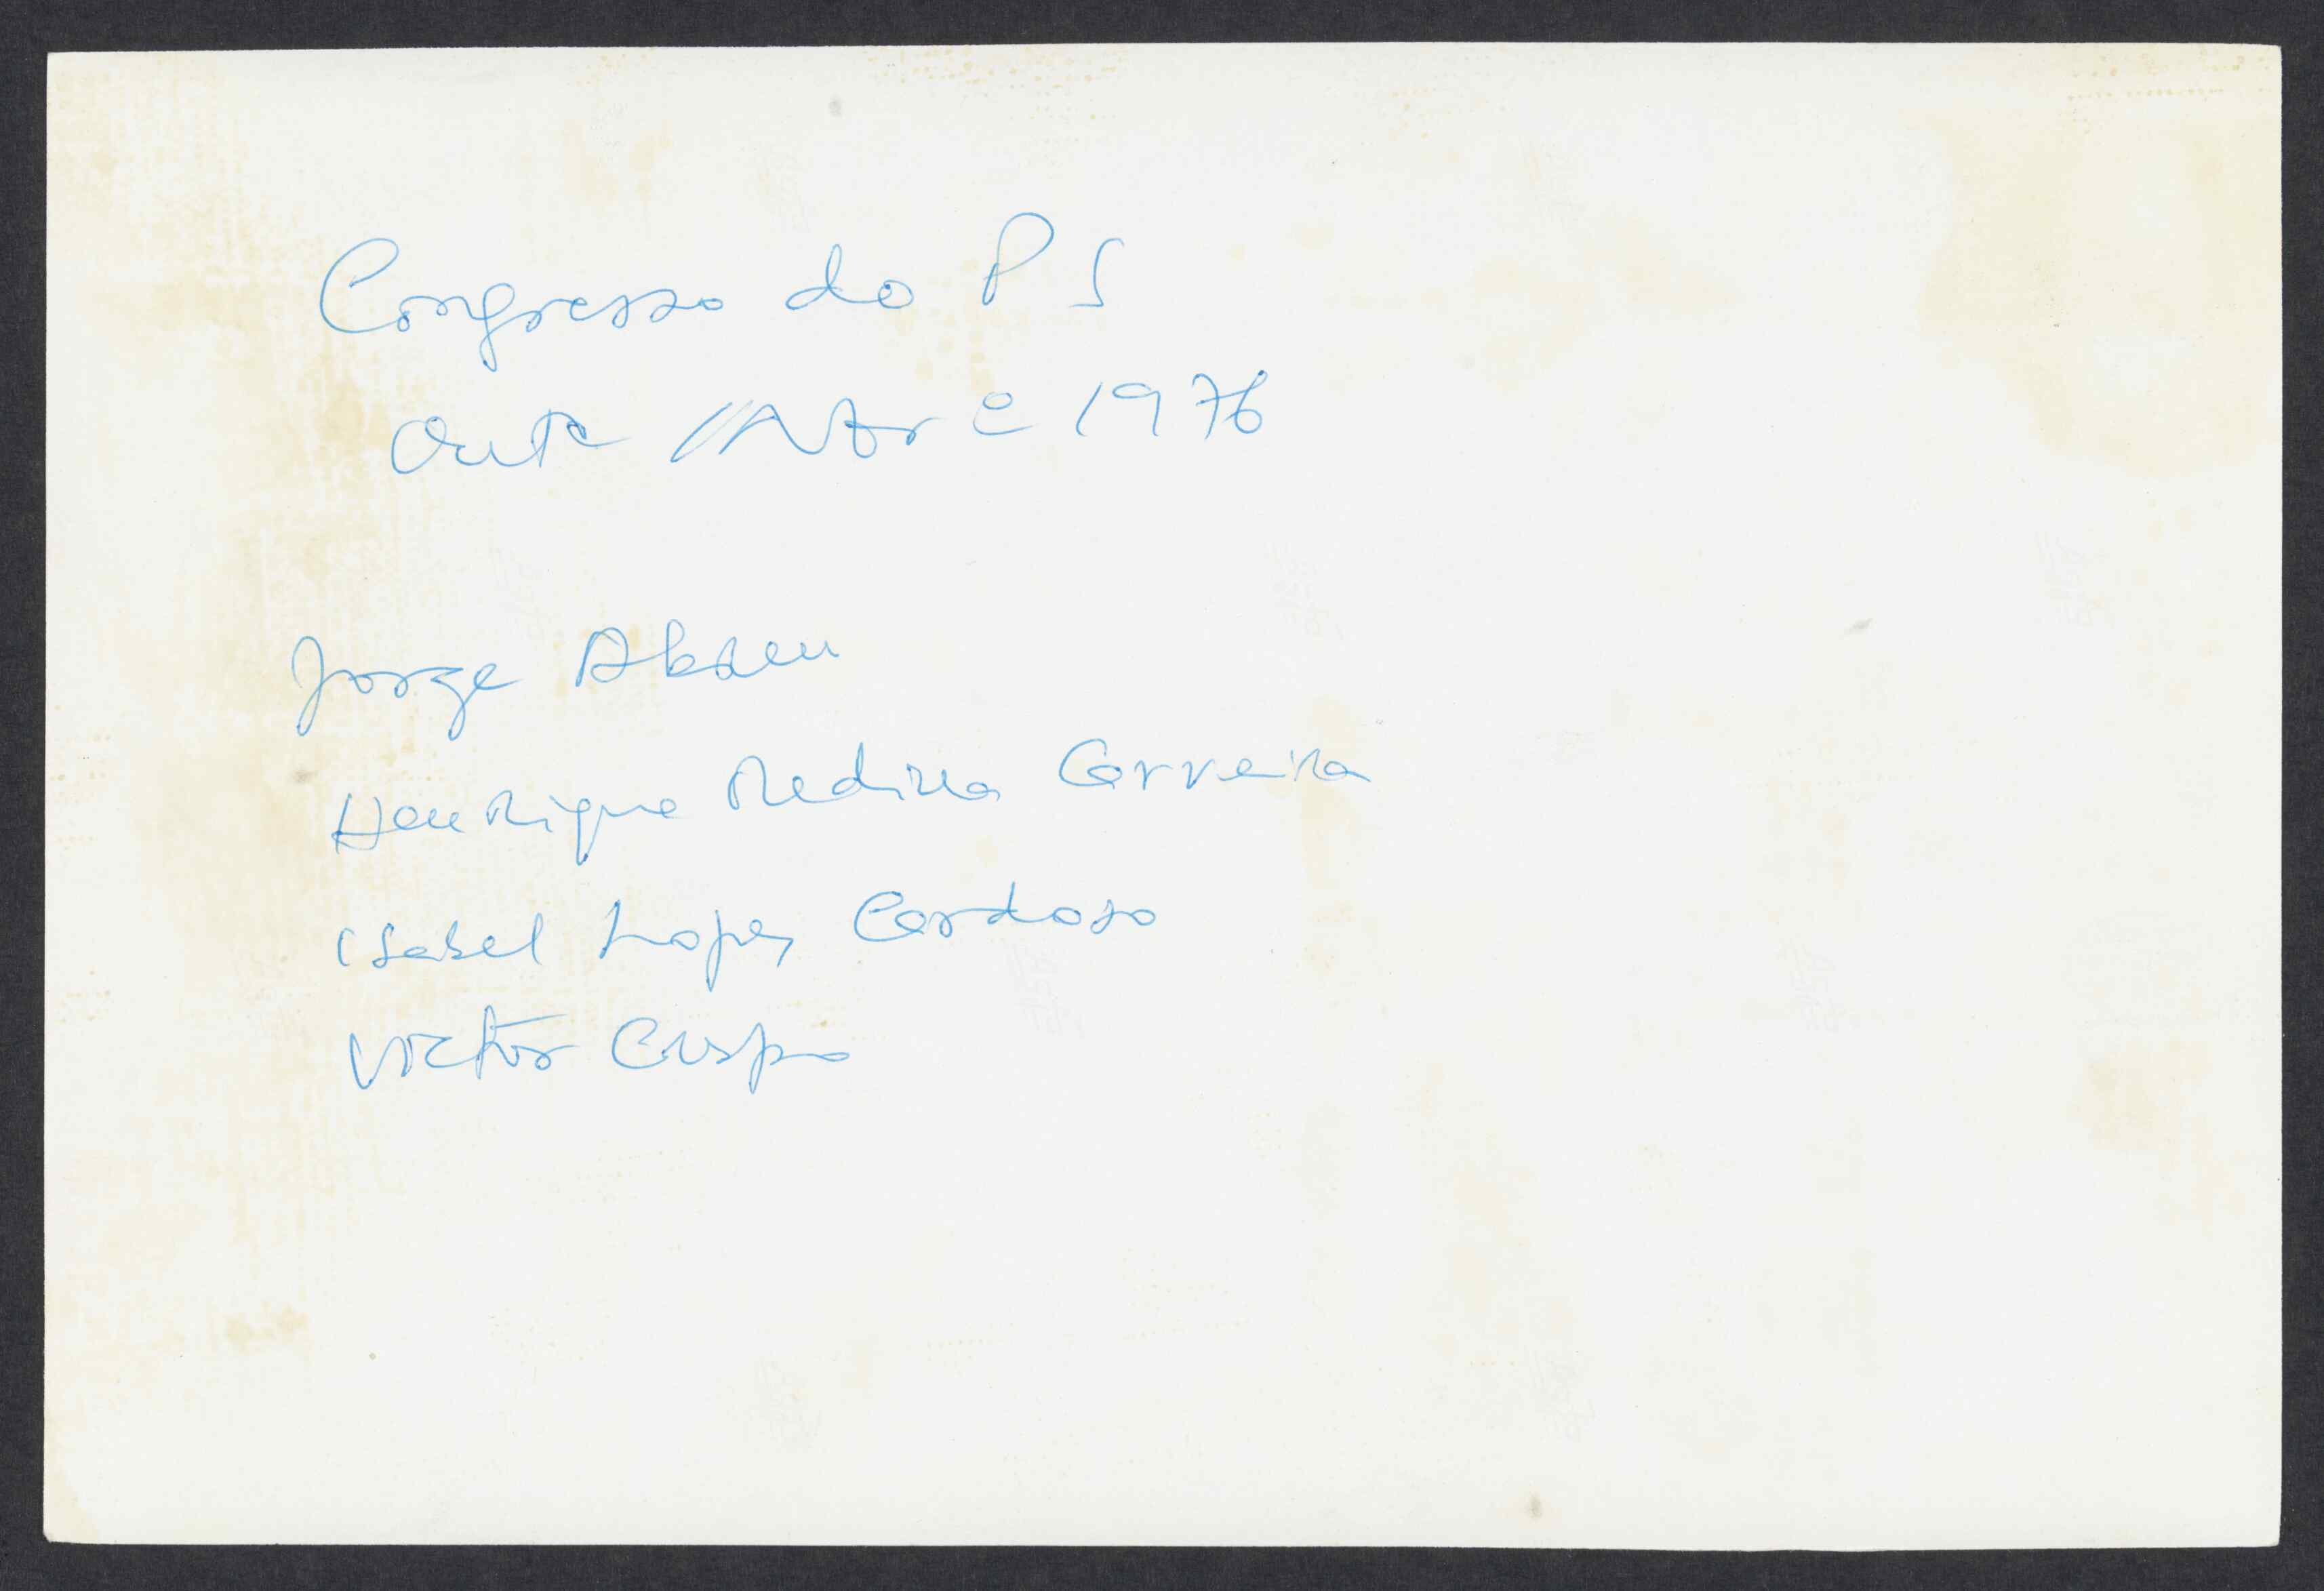 Congresso do PS
Outº //Novº 1976
Jorge Abreu
Henrique Medina Carreira
Isabel Lopes Cardoso
Victor Crespo